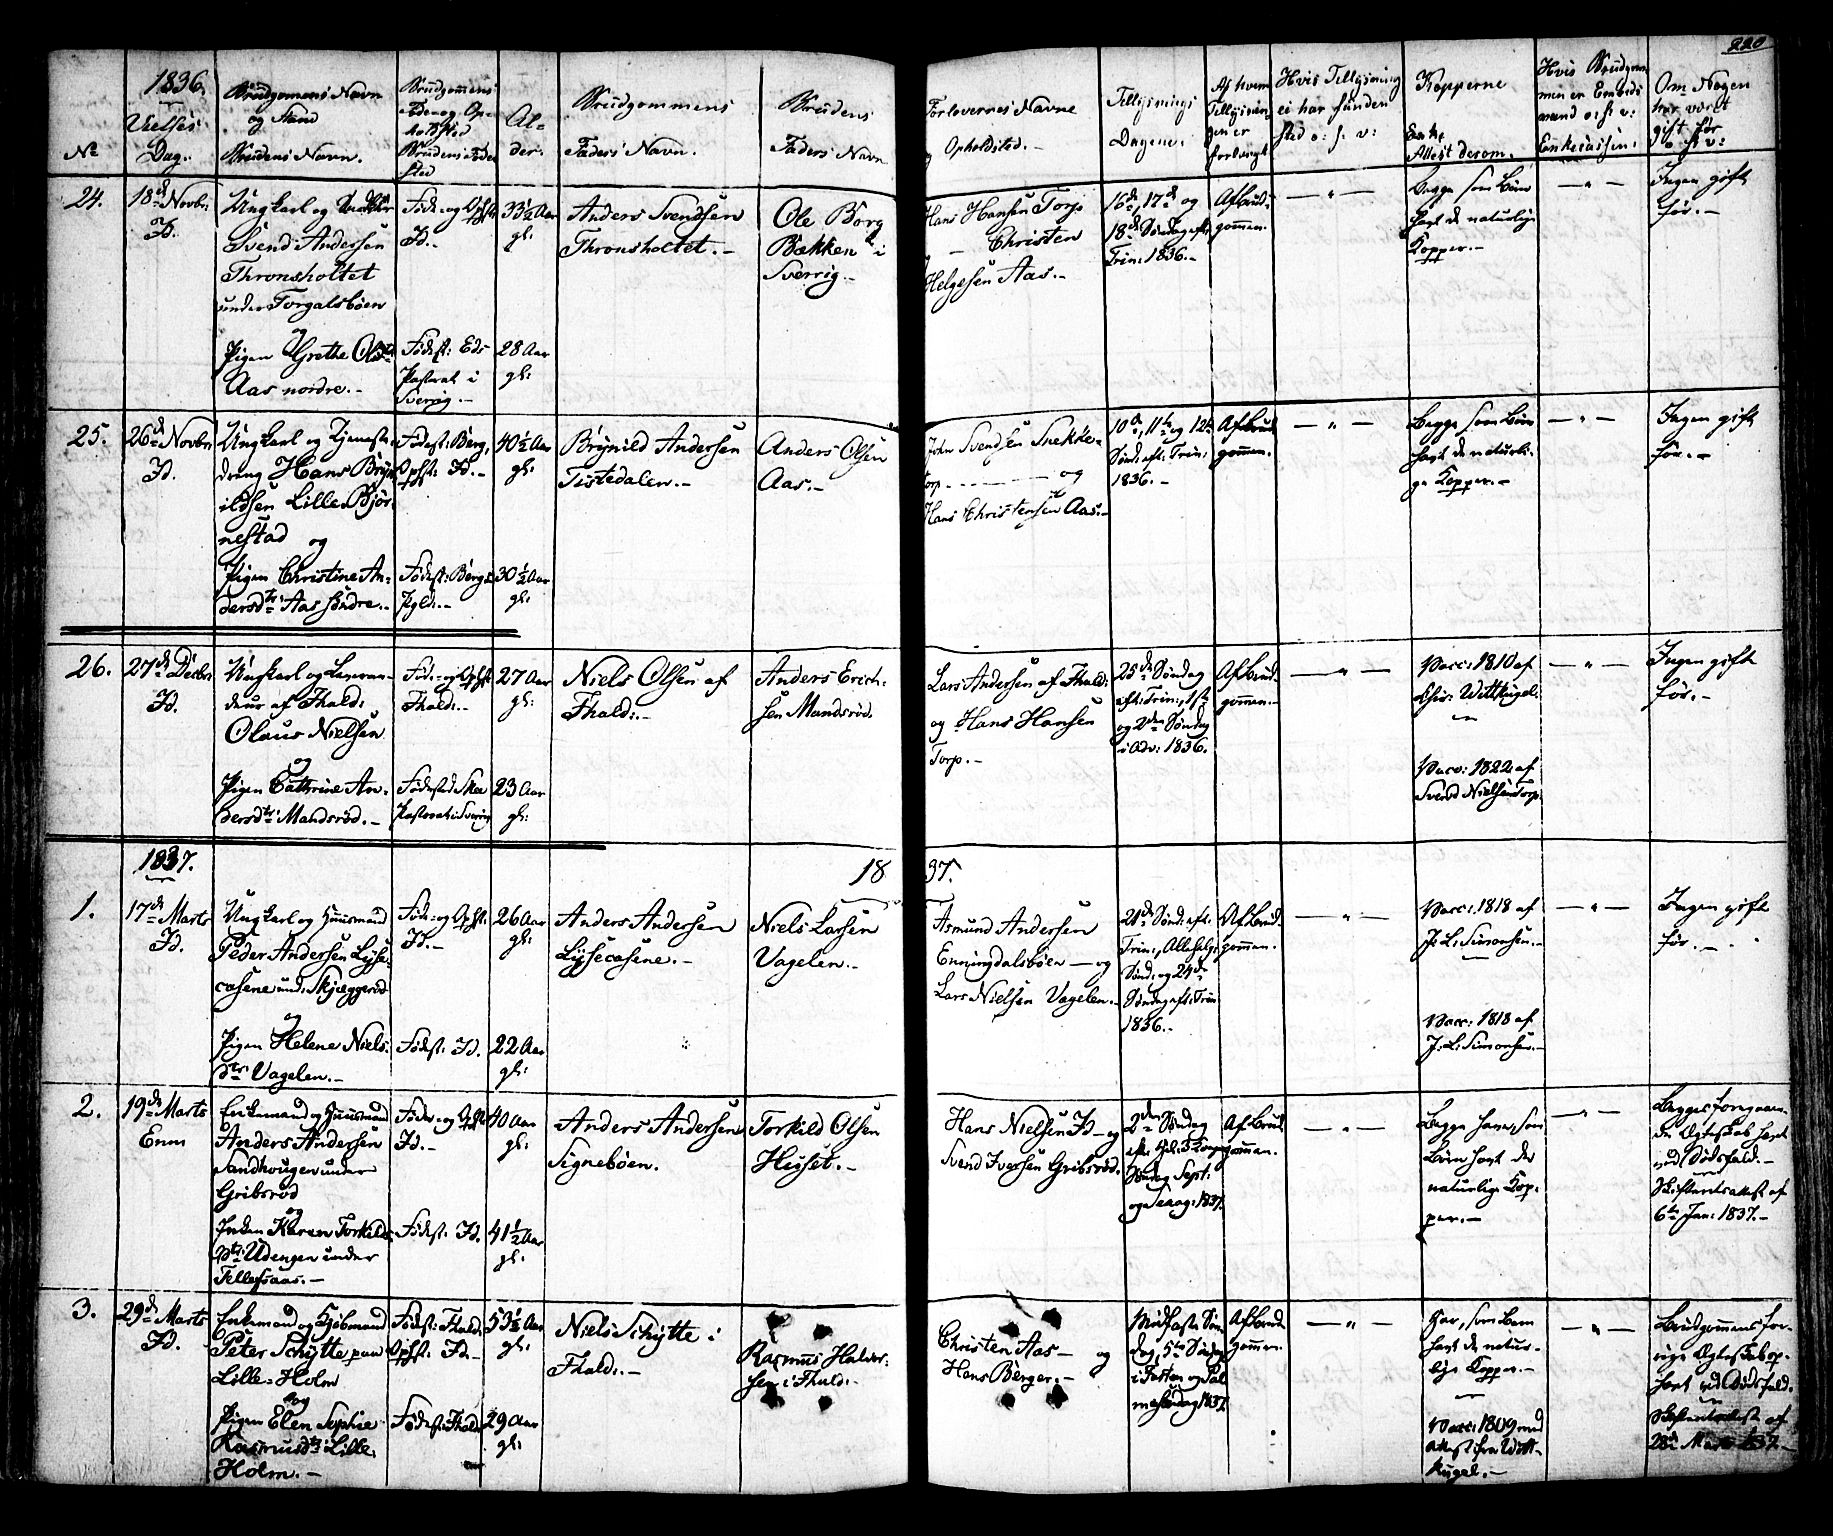 220
1836.
Vielses
Dag.
No
Brudgomens Navn
og Stand
Brudens Navn.
Brudgommens
Føde og Op-
holdsted
Brudens Føde
sted
Al-
der.
Brudgommens
Faders Navn.
Brudens
Faders Navn
Forlovernes Navne
og Opholdsted.
Tillysnings
Dagene.
Af hvem
Tillysnin-
gen er
forlangt
Hvis Tillysning
ei har funden
sted o: s: v:
Kopperne
Attest derom.
Hvis Brudgom-
men er Enkemand o: s: v:
Om Nogen
har været
gift før
o: s: v:
24.
18de Novbr
Id.
Ungkarl og
Svend Andersen
Thronsholtet
under Torgalsbøen
og
Pigen Grethe Olsdtr
Aas nordre.-
Føde- og Ophst:
Id.-
Fødest: Eds
Pastorat i
Sverrig.-
33½ Aar
gl:
28 Aar
gl:
Anders Svendsen
Thronsholtet.-
Ole Borg
Bækken i
Sverrig.-
Hans Hansen Torp
- Christen
Helgesen Aas.-
16de, 17de og
18de Søndag eft:
Trin: 1836.-
Af Brud-
gommen.
— " —
Begge som Børn
havt de naturlige
Kopper.-
— " —
Ingen gift
før.-
25.
26de Novbr
Id.
Ungkarl og Tjeneste-
dreng Hans Bryn-
ildsen Lille Bjør-
nestad
og
Pigen Christine An-
dersdtr Aas søndre.-
Fødest: Berg,
Ophst: Id.-
Fødest: Bergs
Pgld:-
40½ Aar
gl:
30½ Aar
gl:
Brynild Andersen
Tistedalen.-
Anders Olsen
Aas.-
John Svendsen Snekke-
torp - og
Hans Christensen Aas.-
10de, 11te og 12te
Sønd: eft: Trin:
1836.-
Af Brud
gommen.
— " —
Begge som Børn
havt de naturli-
ge Kopper.-
— " —
Ingen gift
før.-
26.
27de Decbr
Id.
Ungkarl og Leveran-
deur af Fhald:
Olaus Nielsen
og
Pigen Cathrine An-
dersdtr Mandsrød.-
Føde- og Ophst:
Fhald:-
Fødested Skee
Pastorat i Sverrig
27 Aar
gl:
23 Aar
gl:
Niels Olsen af
Fhald:-
Anders Erich-
sen Mandsrød.
Lars Andersen af Fhald:
og Hans Hansen
Torp.-
25de Søndag
eft: Trin:, 1ste
og 2den Søndag
i Adv: 1836.
Af Brud-
gommen.-
— " —
Vacc: 1810 af
Chir: Wittkugel:
Vacc: 1822 af
Svend Nielsen Torp
— " —
Ingen gift
før.-
1837.
1837.
1.
17de Marts
Id.
Ungkarl og Huusmand
Peder Andersen Lyse-
casene und: Skjæggerød
og
Pigen Helene Niels-
dtr Vagelen.-
Føde- og Ophst:
Id.-
Fødest: Id.
26 Aar
gl:
22 Aar
gl:
Anders Andersen
Lysecasene.-
Niels Larsen
Vagelen.-
Asmund Andersen
Enningdalsbøen - og
Lars Nielsen Vagelen.-
21de Sønd: eft:
Trin:, Allehelg:
Sønd: og 24de
Søndag eft: Trin
1836.-
Af Brud-
gommen.
— " —
Vacc: 1818 af
J: L: Simonsen.-
Vacc: 1818 af
J: L: Simonsen.-
— " —
Ingen gift
før.-
2.
19de Marts
Enm
Enkemand og Huusmand
Anders Andersen
Sandhougen under
Gribsrød
og
Enken Karen Torkilds-
dtr Udengen under
Tellefsaas.-
Føde- og Ophst:
Id.-
Fødest: Id.
40 Aar
gl:
41½ Aar
gl:
Anders Andersen
Signebøen.
Torkild Olsen
Huset.-
Hans Nielsen Id - og
Svend Iversen Gribsrød.
2den Søndag
eft: Hel: 3 Kong:
Søndag Sept:
og Sexag: 1837.
Af Brud
gommen.
— " —
Begge have som
Børn havt de
naturlige Kop-
per.-
— " —
Begges foregaaen-
de Ægteskab hævet
ved Dødsfald.-
Skifteretsattest af
6te Jan: 1837.-
3.
29de Marts
Id.
Enkemand og Kjøbmand
Peter Schytte paa
Lille-Holm
og
Pigen Elen Sophie
Rasmusdtr Lille-
Holm.-
Fødest: Fhald:
Ophst: Id.-
Fødest: Fhald:
53½ Aar
gl:
29 Aar
gl:
Niels Schytte i
Fhald:-
Rasmus Halvor-
sen i Fhald:-
Christen Aas- og
Hans Børger.-
Midfaste Søn-
dag, 5te Søndag
i Fasten og Pal-
mesøndag 1837.
Af Brud-
gommen.
— " —
Har, som Barn
havt de natur-
lige Kopper.-
Vacc: 1809 med
Attest fra Witt-
kugel.-
— " —
Brudgommens for-
rige Ægteskab op-
hævt ved Dødsfald.
Skifteretsattest af
28de Marts 1837.-